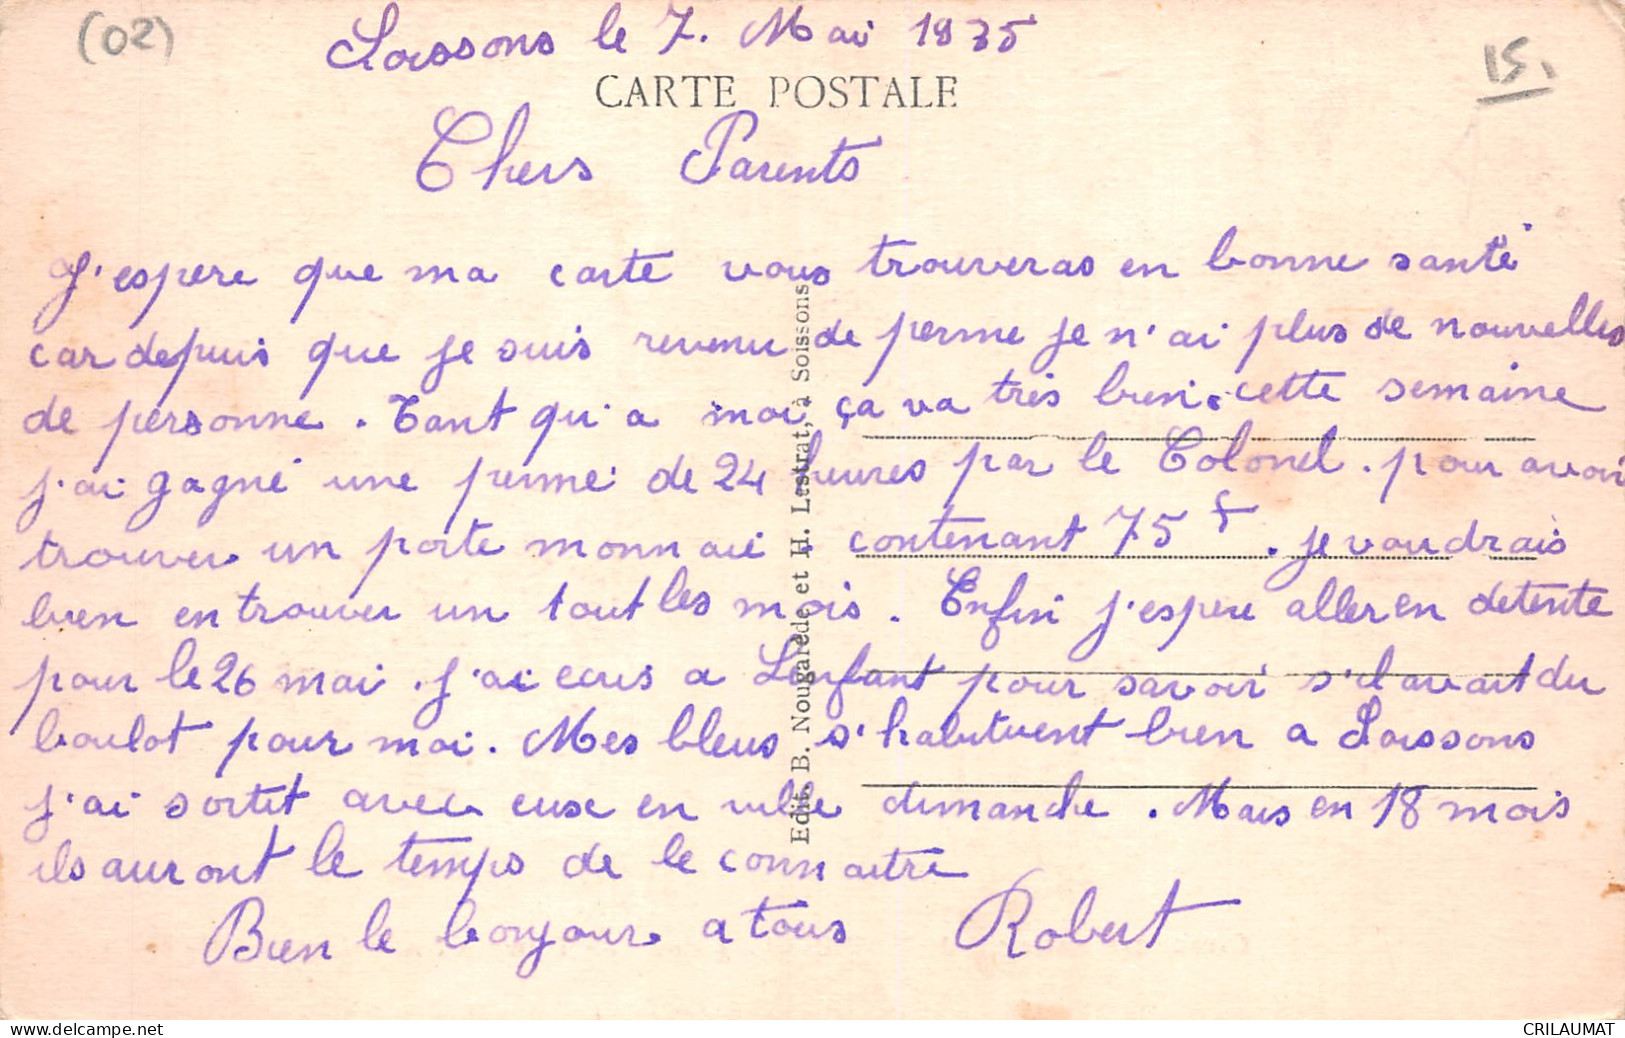 (02)
Soissons le 7. Mai 1935
15.
CARTE POSTALE
Chers Parents
J'espere que ma carte vous trouveras en bonne santé
car depuis que je suis revenu de perme je n'ai plus de nouvelles
de personne. Tant qu'a moi ça va très bien. cette semaine
j'ai gagné une perme de 24 heures par le Colonel. pour avoir
trouver un porte monnaie contenant 75 f. je voudrais
bien en trouver un tout les mois. Enfin j'espere aller en detente
pour le 26 mai. j'ai ecris a Lenfant pour savoir s'il avait du
boulot pour moi. Mes bleus s'habituent bien a Soissons
j'ai sortit avec euse en ville dimanche. Mais en 18 mois
ils auront le temps de le connaitre
Bien le bonjour a tous Robert
Edit. B. Nougarède et H. Lestrat, à Soissons
www.delcampe.net
CRILAUMAT